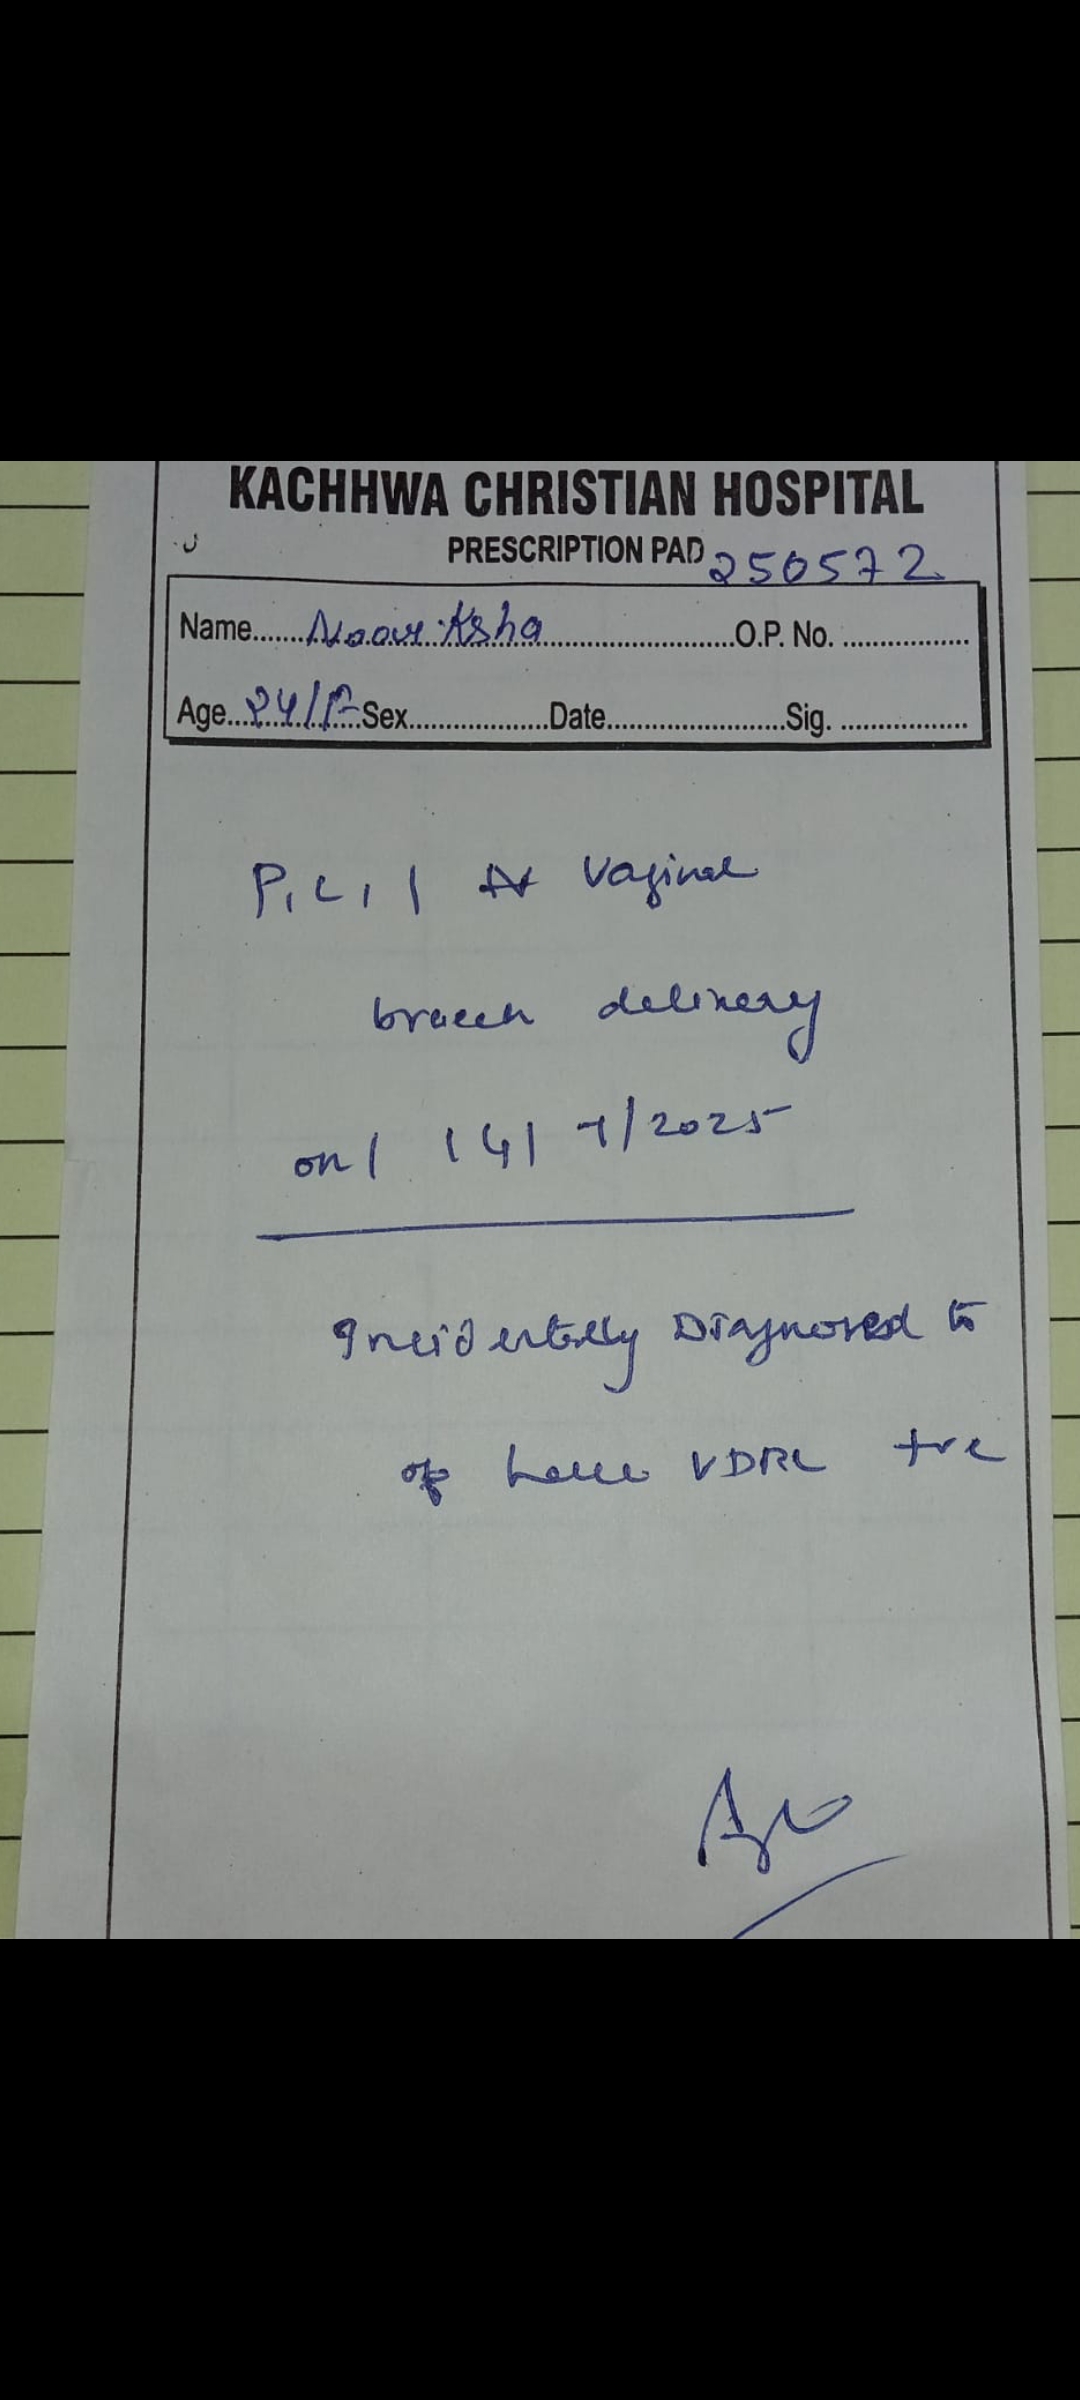 KACHHWA CHRISTIAN HOSPITAL
PRESCRIPTION PAD 250572
Name....... ....... O.P. No. .......
Age 24/F Sex....... Date....... Sig. .......
P1L1 | Vaginal
breech delivery
on | 14 | 7/2025
Incidentally Diagnosed to
of have VDRL +ve